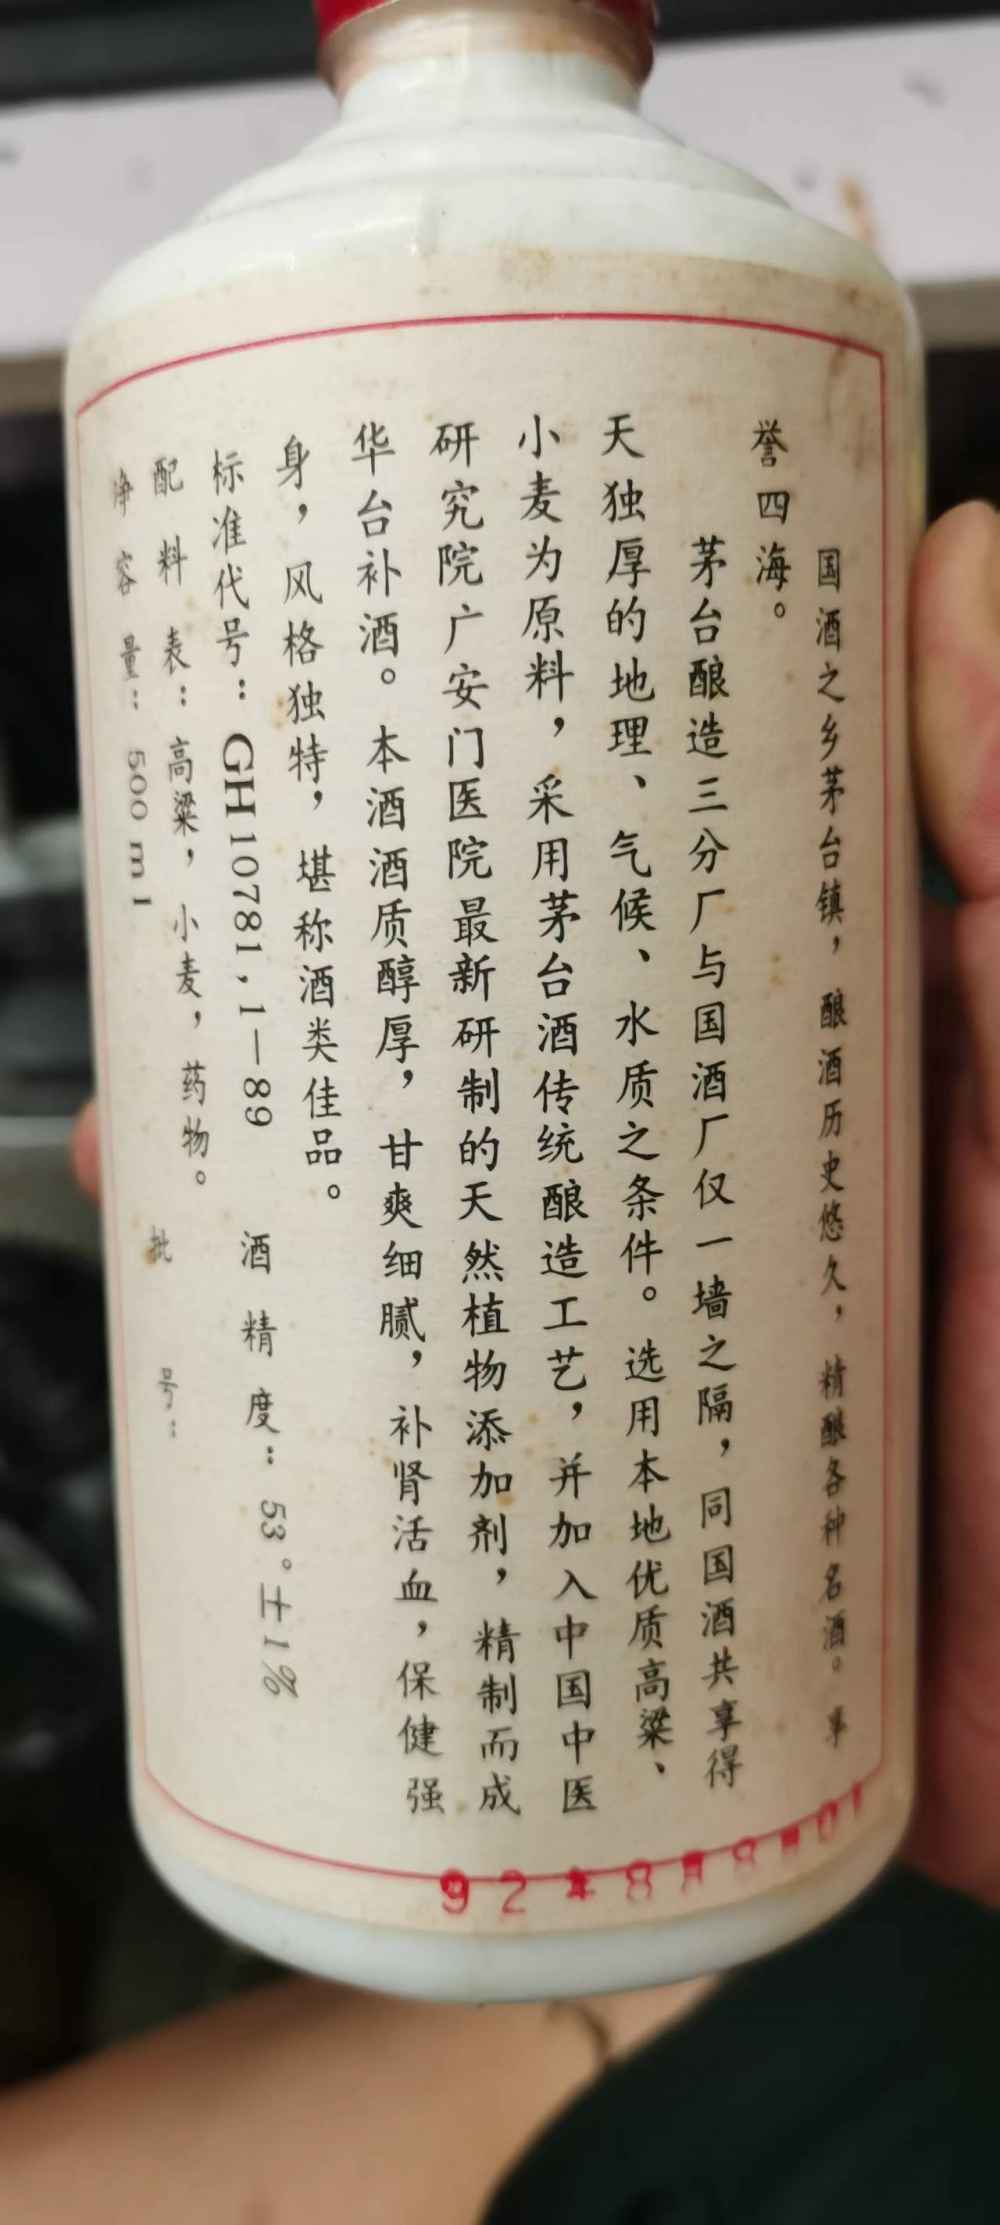 国酒之乡茅台镇，酿酒历史悠久，精酿各种名酒。享
誉四海。
茅台酿造三分厂与国酒厂仅一墙之隔，同国酒共享得
天独厚的地理、气候、水质之条件。选用本地优质高粱、
小麦为原料，采用茅台酒传统酿造工艺，并加入中国中医
研究院广安门医院最新研制的天然植物添加剂，精制而成
华台补酒。本酒酒质醇厚，甘爽细腻，补肾活血，保健强
身，风格独特，堪称酒类佳品。
标准代号：GH10781.1—89 酒精度：53°±1%
配料表：高粱，小麦，药物。
净容量：500ml 批号：
92年8月8日01